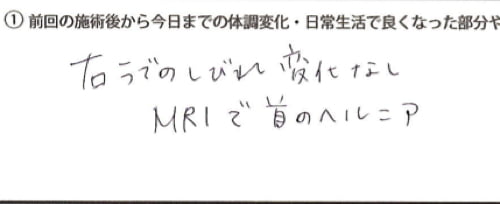 ① 前回の施術後から今日までの体調変化・日常生活で良くなった部分や
右うでのしびれ 変化なし
MRIで首のヘルニア